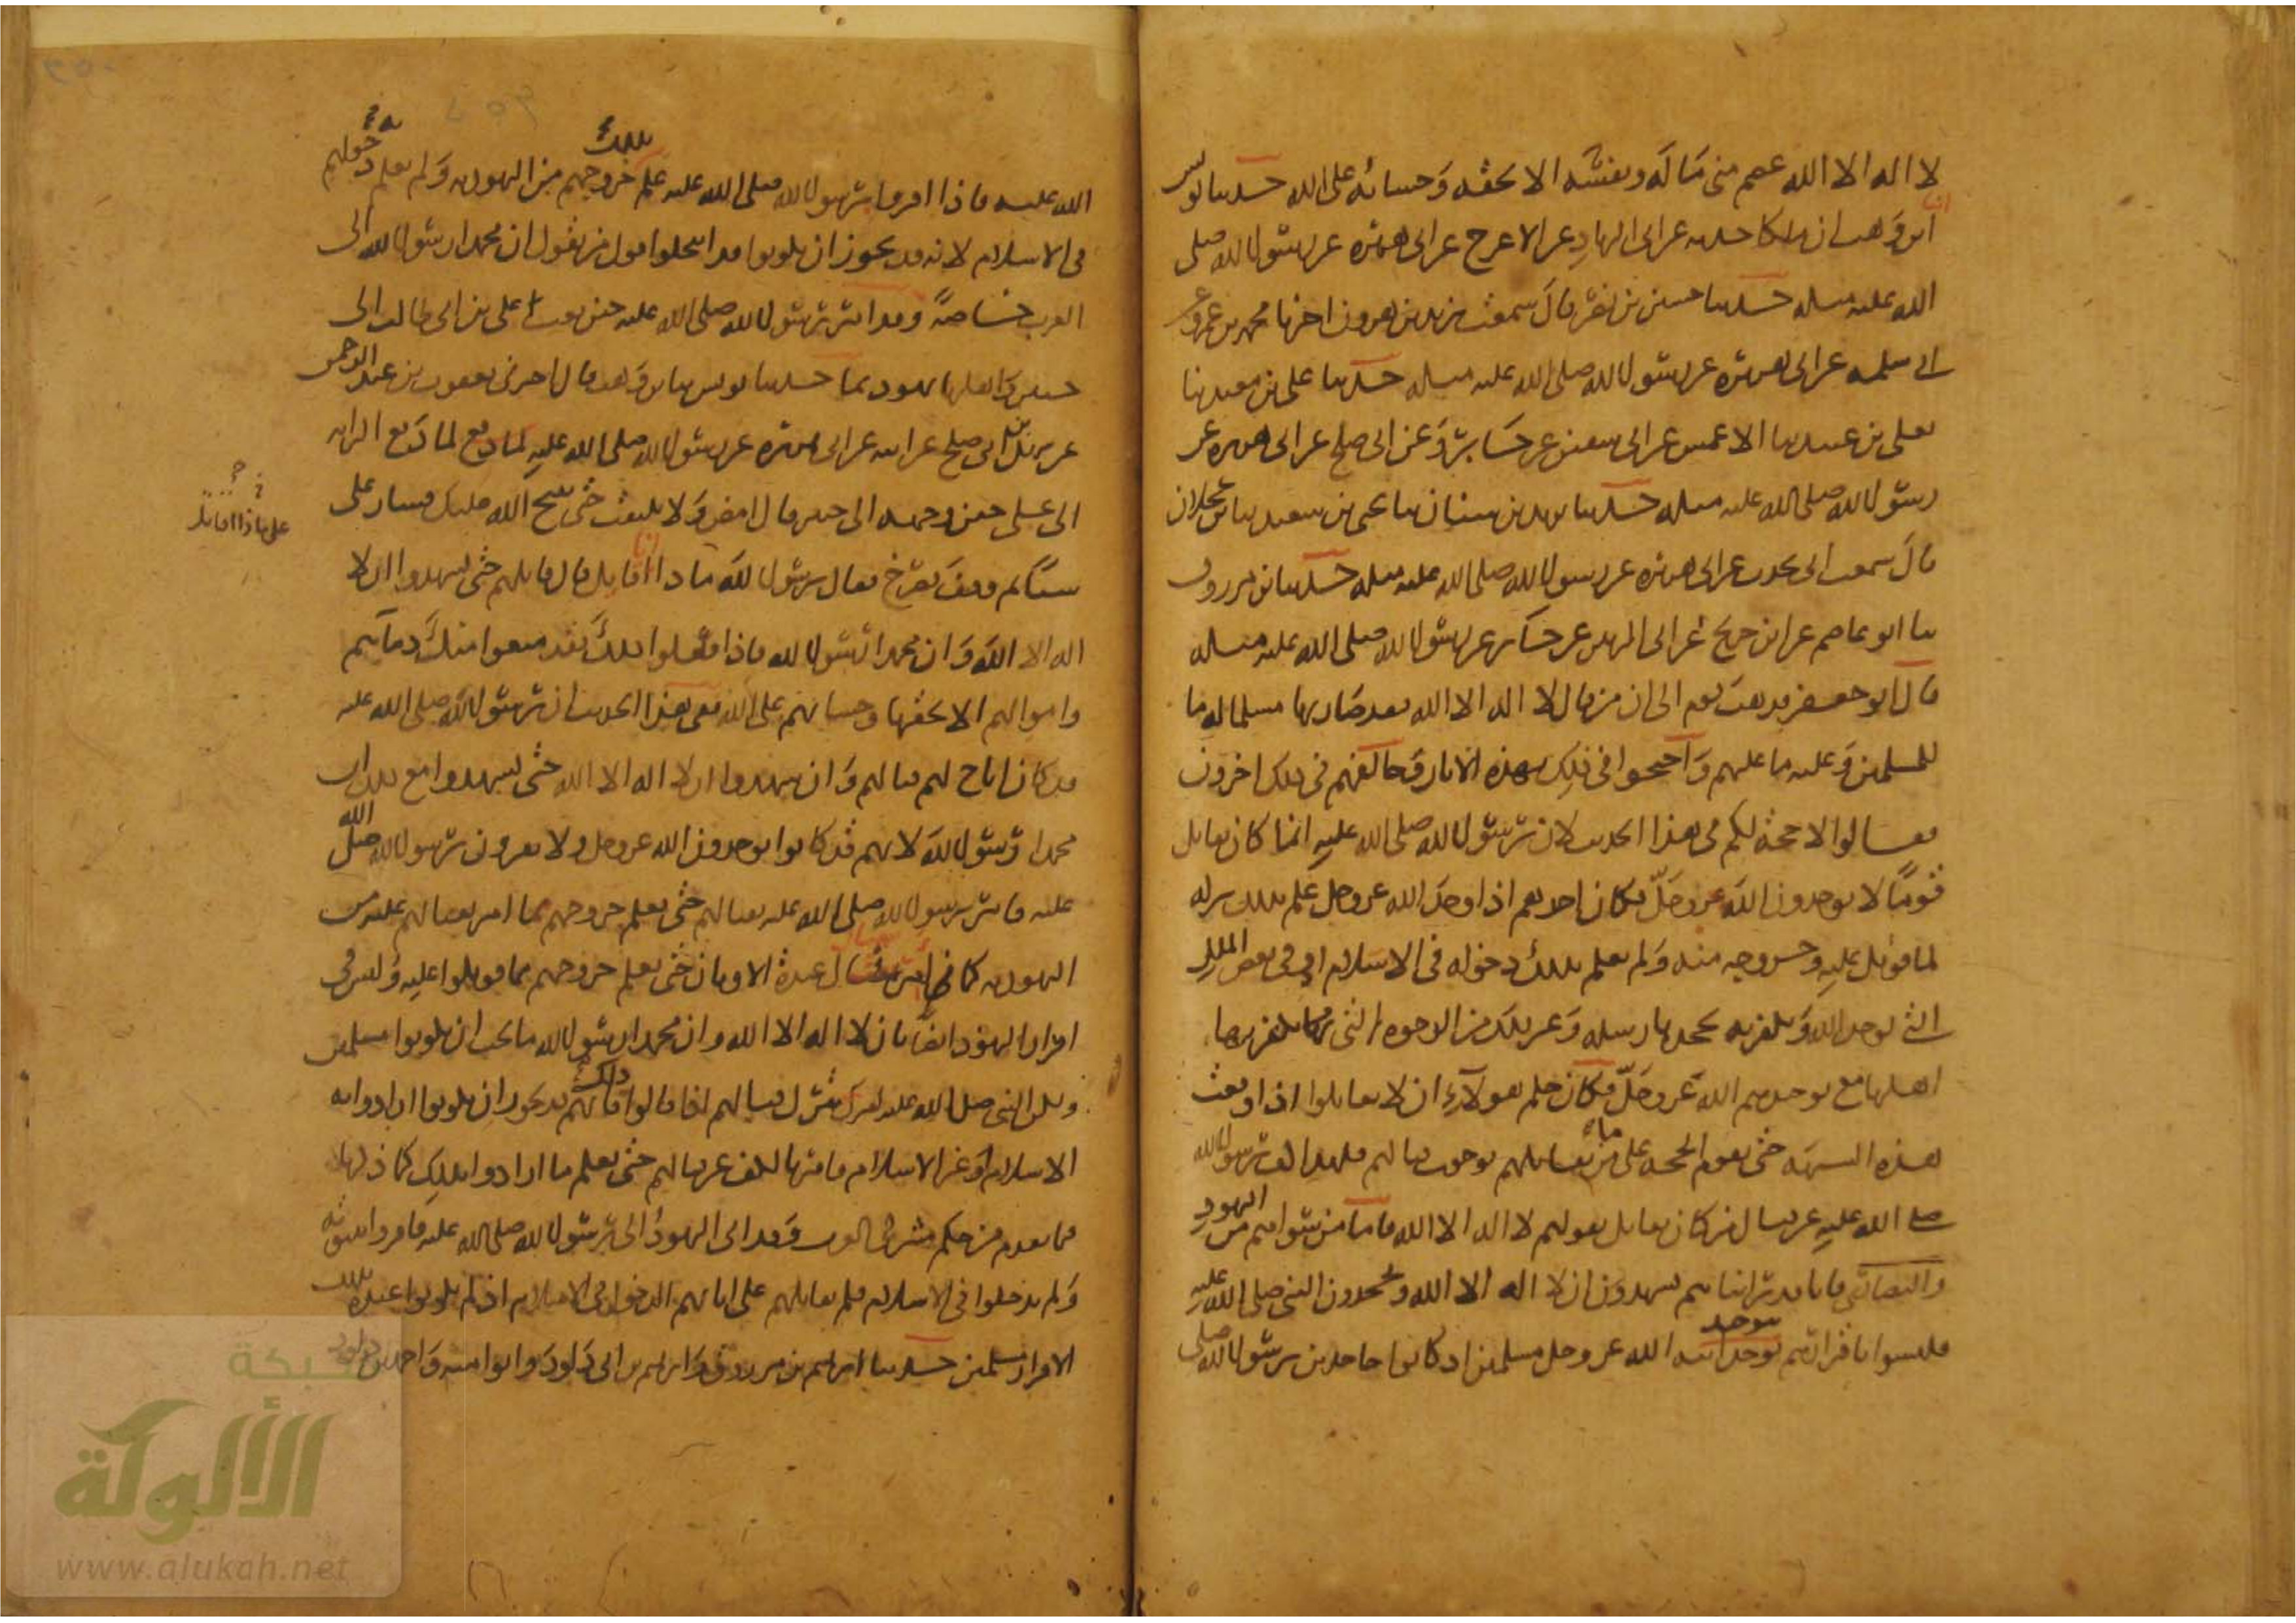 لا اله الا الله عصم منى ماله ونفسه الا بحقه وحسابه على الله حدثنا يونس
انا ابن وهب ان مالكا حدثه عن ابى الزناد عن الاعرج عن ابى هريرة عن رسول الله صلى
الله عليه وسلم حدثنا حسين بن نصر قال سمعت يزيد بن هرون اخبرنا محمد بن عمرو عن
ابى سلمه عن ابى هريرة عن رسول الله صلى الله عليه وسلم حدثنا على بن معبد ثنا
يعلى بن عبيد ثنا الاعمش عن ابى سفين عن جابر وعن ابى صلح عن ابى هريرة عن
رسول الله صلى الله عليه وسلم حدثنا يزيد بن سنان ثنا يحيى بن سعيد ثنا ابن عجلان
قال سمعت ابى يحدث عن ابى هريرة عن رسول الله صلى الله عليه وسلم حدثنا ابن مرزوق
ثنا ابو عاصم عن ابن جريج عن ابى الزبير عن جابر عن رسول الله صلى الله عليه وسلم
قال ابو جعفر فذهب قوم الى ان من قال لا اله الا الله فقد صار بها مسلما له ما
للمسلمين وعليه ما عليهم واحتجوا فى ذلك بهذه الاثار وخالفهم فى ذلك اخرون
فقالوا لا حجة لكم فى هذا الحديث لان رسول الله صلى الله عليه انما كان يقاتل
قوما لا يوحدون الله عز وجل فكان احدهم اذا وحد الله عز وجل علم بذلك تركه
لما قوتل عليه وخروجه منه ولم يعلم بذلك دخوله فى الاسلام او فى بعض الملل
التى توحد الله وتكفر به بجحدها رسله وغير ذلك من الوجوه التى يكفر بها
اهلها مع توحيدهم الله عز وجل فكان حكم هولاء ان لا يقاتلوا اذا وقعت
هذه الشبهة حتى تقوم الحجة على من يقاتلهم وجوب قتالهم فلهذا كف رسول الله
صلى الله عليه عن قتال من كان يقاتل بقولهم لا اله الا الله فاما من سواهم من اليهود
والنصارى فانا قد رايناهم يشهدون ان لا اله الا الله ويجحدون النبى صلى الله عليه
فليسوا باقرارهم بتوحيد الله عز وجل مسلمين اذ كانوا جاحدين رسول الله صلى
الله عليه فاذا اقروا برسول الله صلى الله عليه علم بذلك خروجهم من اليهودية ولم يعلم به دخولهم
فى الاسلام لانه قد يجوز ان يكونوا قد انتحلوا قول من يقول ان محمدا رسول الله الى
العرب خاصة وقد امر رسول الله صلى الله عليه حين بعث على بن ابى طالب الى
خيبر واهلها يهود بما حدثنا يونس ثنا ابن وهب قال اخبرنى يعقوب بن عبد الرحمن
عن سهيل بن ابى صلح عن ابيه عن ابى هريرة عن رسول الله صلى الله عليه لما دفع الراية
الى على حين وجهه الى خيبر قال امض ولا تلتفت حتى يفتح الله عليك فسار على
شيئا ثم وقف يصرخ فقال يرسول الله ما ذا اقاتل قال قاتلهم حتى يشهدوا ان لا
على ماذا اقاتل
اله الا الله وان محمدا رسول الله فاذا فعلوا ذلك فقد منعوا منك دماءهم
واموالهم الا بحقها وحسابهم على الله ففى هذا الحديث ان رسول الله صلى الله عليه
قد كان اباح لهم قتالهم وان شهدوا ان لا اله الا الله حتى يشهدوا مع ذلك ان
محمدا رسول الله لانهم قد كانوا يوحدون الله عز وجل ولا يقرون برسول الله صلى الله
عليه فامر رسول الله صلى الله عليه بقتالهم حتى يعلم خروجهم مما امر بقتالهم عليه من
اليهودية كما امر بقتال عبدة الاوثان حتى يعلم خروجهم مما قوتلوا عليه وليس فى
اقرار اليهود ايضا بان لا اله الا الله وان محمدا رسول الله ما يجب ان يكونوا مسلمين
ولكن النبى صلى الله عليه امر بترك قتالهم اذا قالوا ذلك لانهم قد يجوز ان يكونوا ارادوا به
الاسلام او غير الاسلام فامرنا بالكف عن قتالهم حتى يعلم ما ارادوا بذلك كما ذكرنا
فيما تقدم من حكم مشركى العرب وقد اتى اليهود الى رسول الله صلى الله عليه فاقروا بنبوته
ولم يدخلوا فى الاسلام فلم يقاتلهم على ابائهم الدخول فى الاسلام اذ لم يكونوا عنده بذلك
الاقرار مسلمين حدثنا ابراهيم بن مرزوق وابراهيم بن ابى داود وابو امية واحمد بن داود
شبكة
الألوكة
www.alukah.net